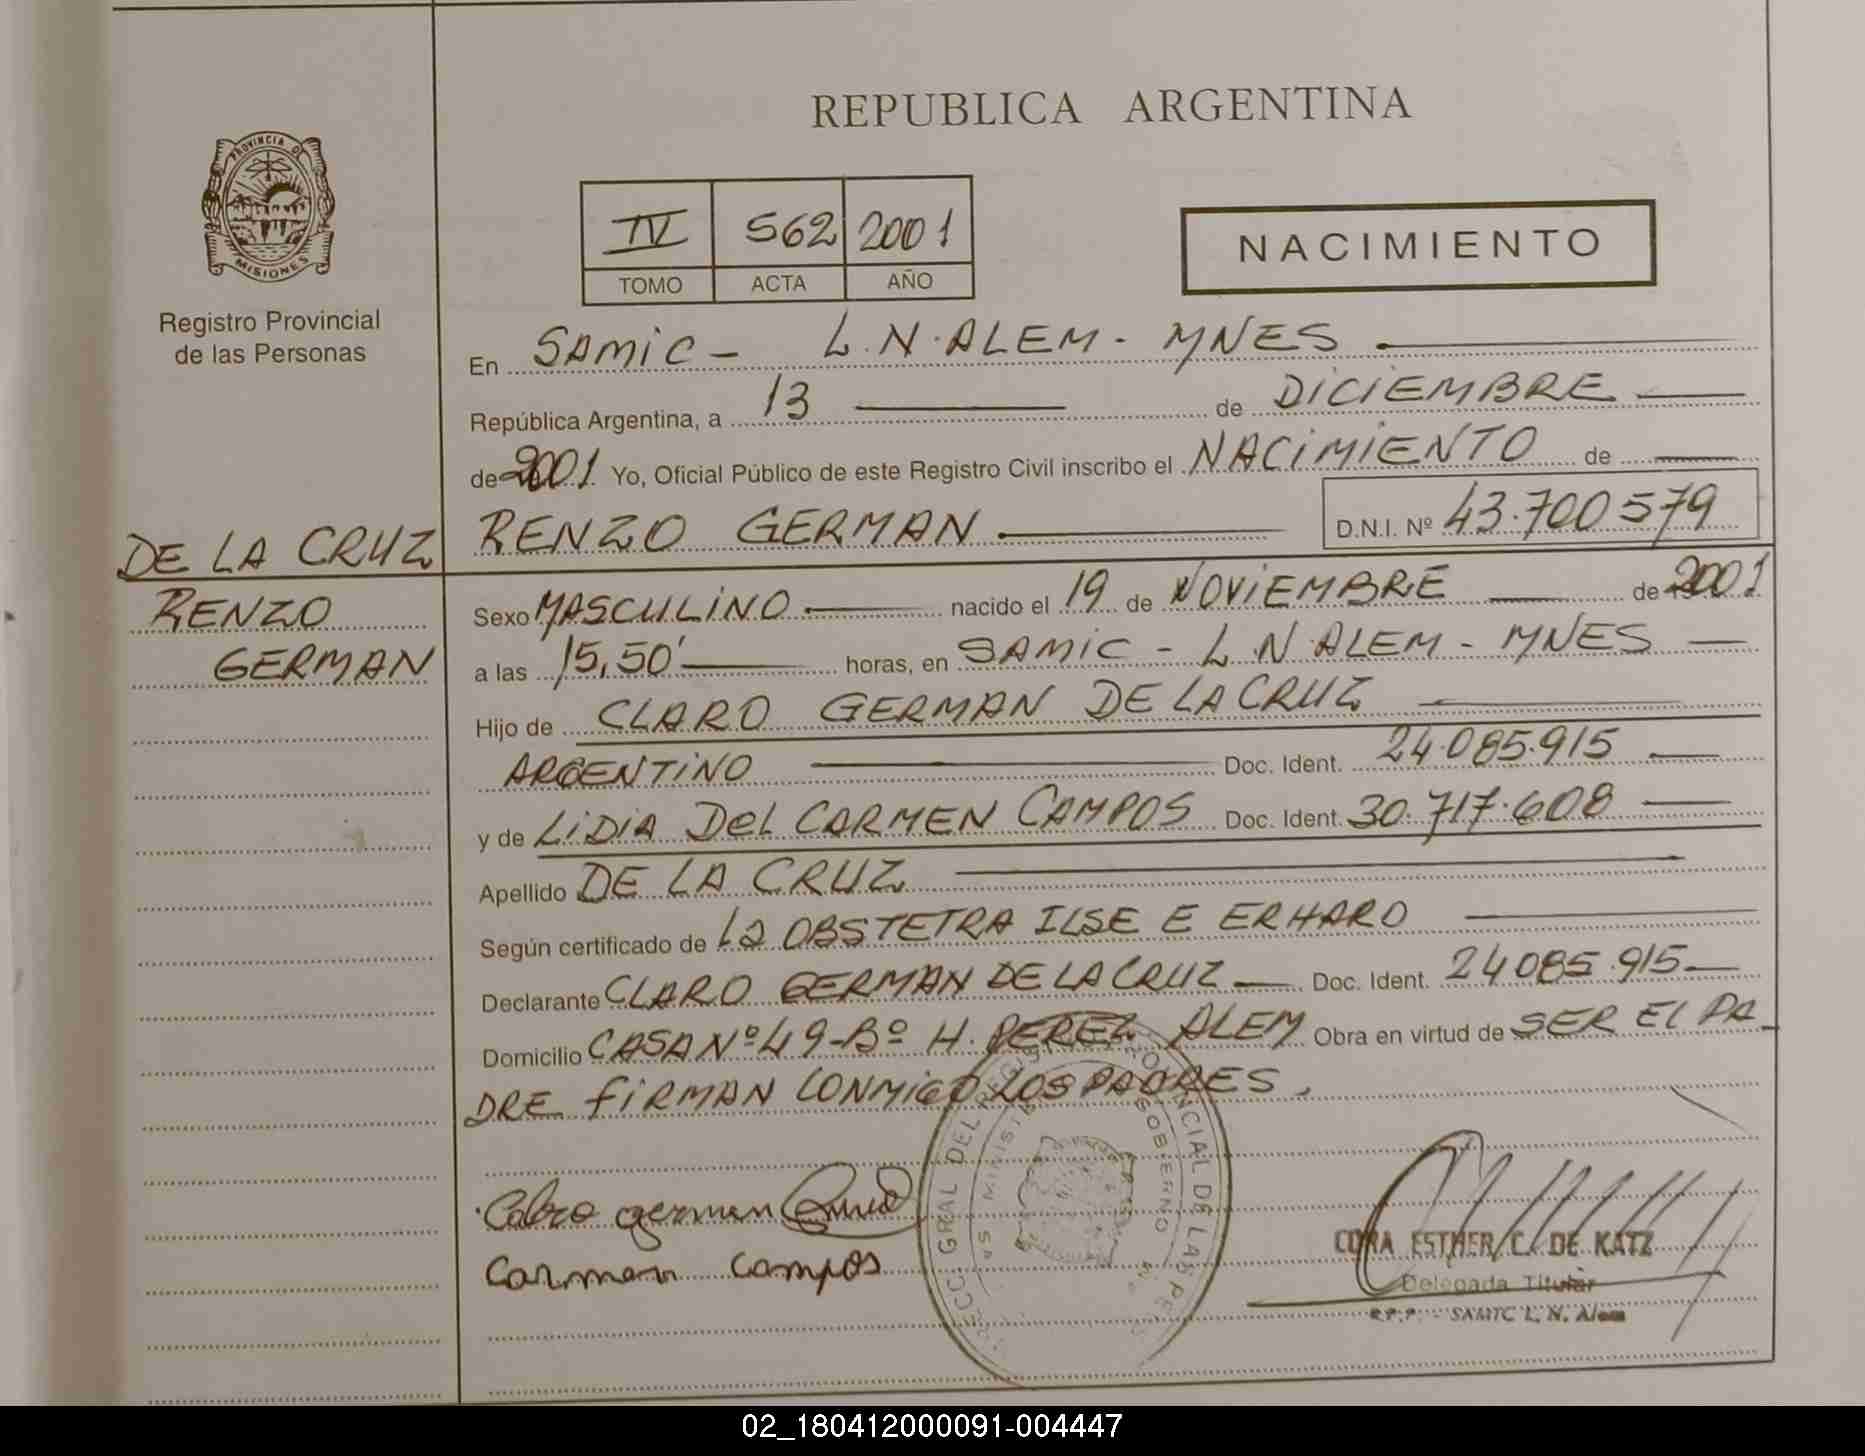 REPUBLICA ARGENTINA
PROVINCIA DE MISIONES
Registro Provincial
de las Personas
IV 562 2001
TOMO ACTA AÑO
NACIMIENTO
En SAMIC - L.N.ALEM - MNES
República Argentina, a 13 de DICIEMBRE
de 2001 Yo, Oficial Público de este Registro Civil inscribo el NACIMIENTO de
DE LA CRUZ
RENZO
GERMAN
RENZO GERMAN D.N.I. Nº 43.700579
Sexo MASCULINO nacido el 19 de NOVIEMBRE de 2001
a las 15,50' horas, en SAMIC - L.N.ALEM - MNES
Hijo de CLARO GERMAN DE LA CRUZ
ARGENTINO Doc. Ident. 24.085.915
y de LIDIA DEL CARMEN CAMPOS Doc. Ident. 30.717.608
Apellido DE LA CRUZ
Según certificado de LA OBSTETRA ILSE E ERHARD
Declarante CLARO GERMAN DE LA CRUZ Doc. Ident. 24085.915
Domicilio CASA Nº 49-Bº H. PEREZ ALEM Obra en virtud de SER EL PA_
DRE FIRMAN CONMIGO LOS PADRES.
german
Carmen Campos
CORA ESTHER C. DE KATZ
Delegada Titular
R.P.P. - SAMIC L. N. Alem
02_180412000091-004447